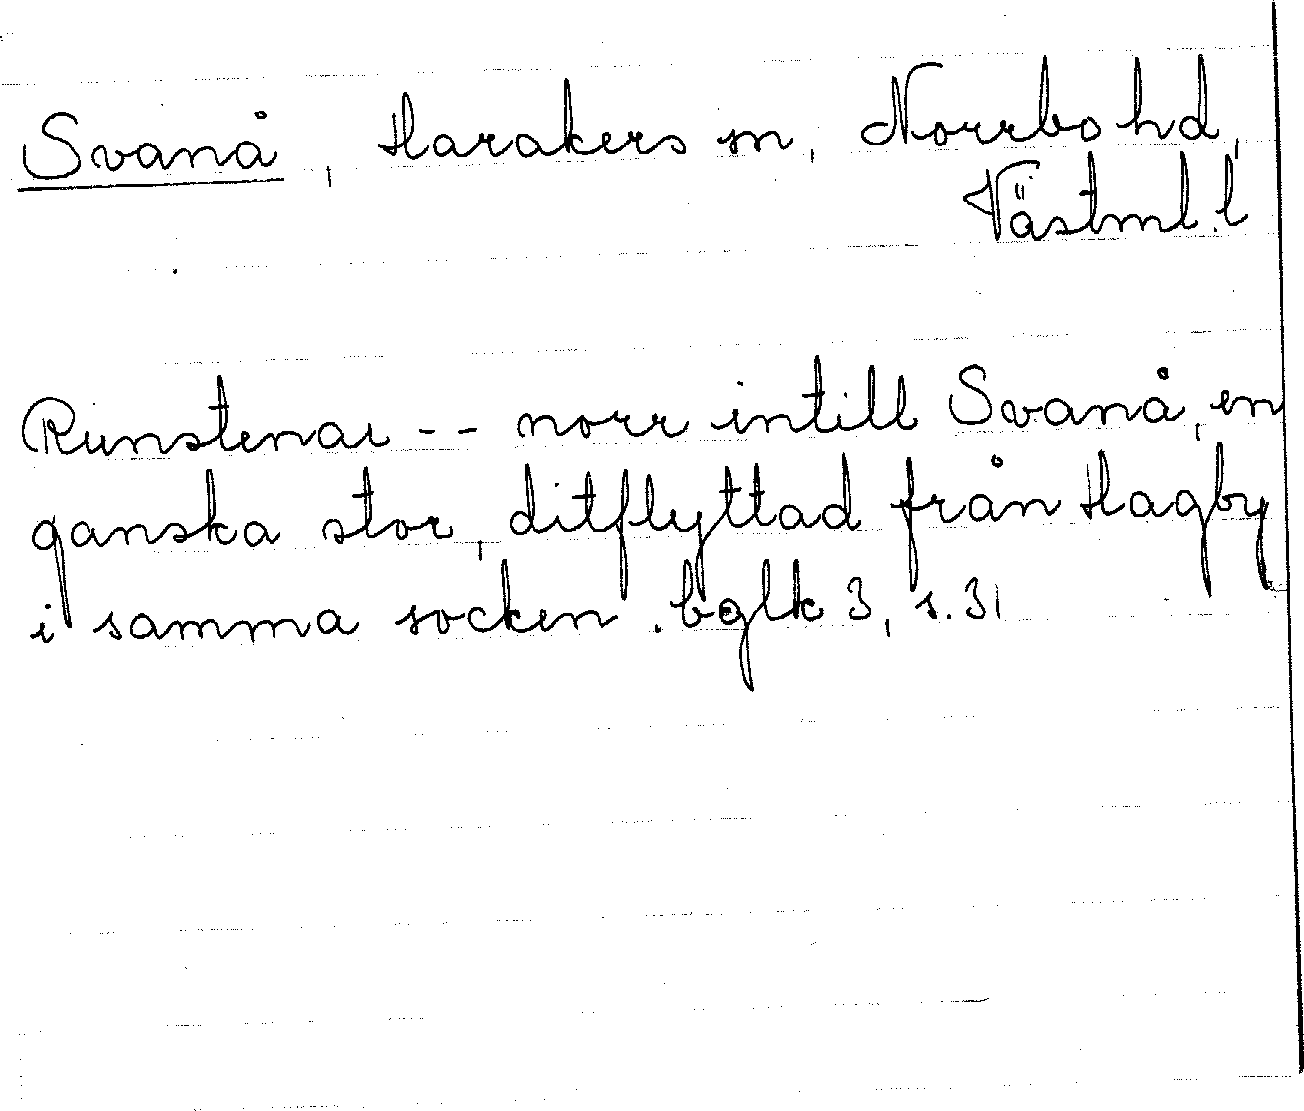 Svanå, Harakers sn, Norrbo hd,
Västml. l
Runstenar -- norr intill Svanå, en
ganska stor, ditflyttad från Hagby
i samma socken. bglk 3, s. 31